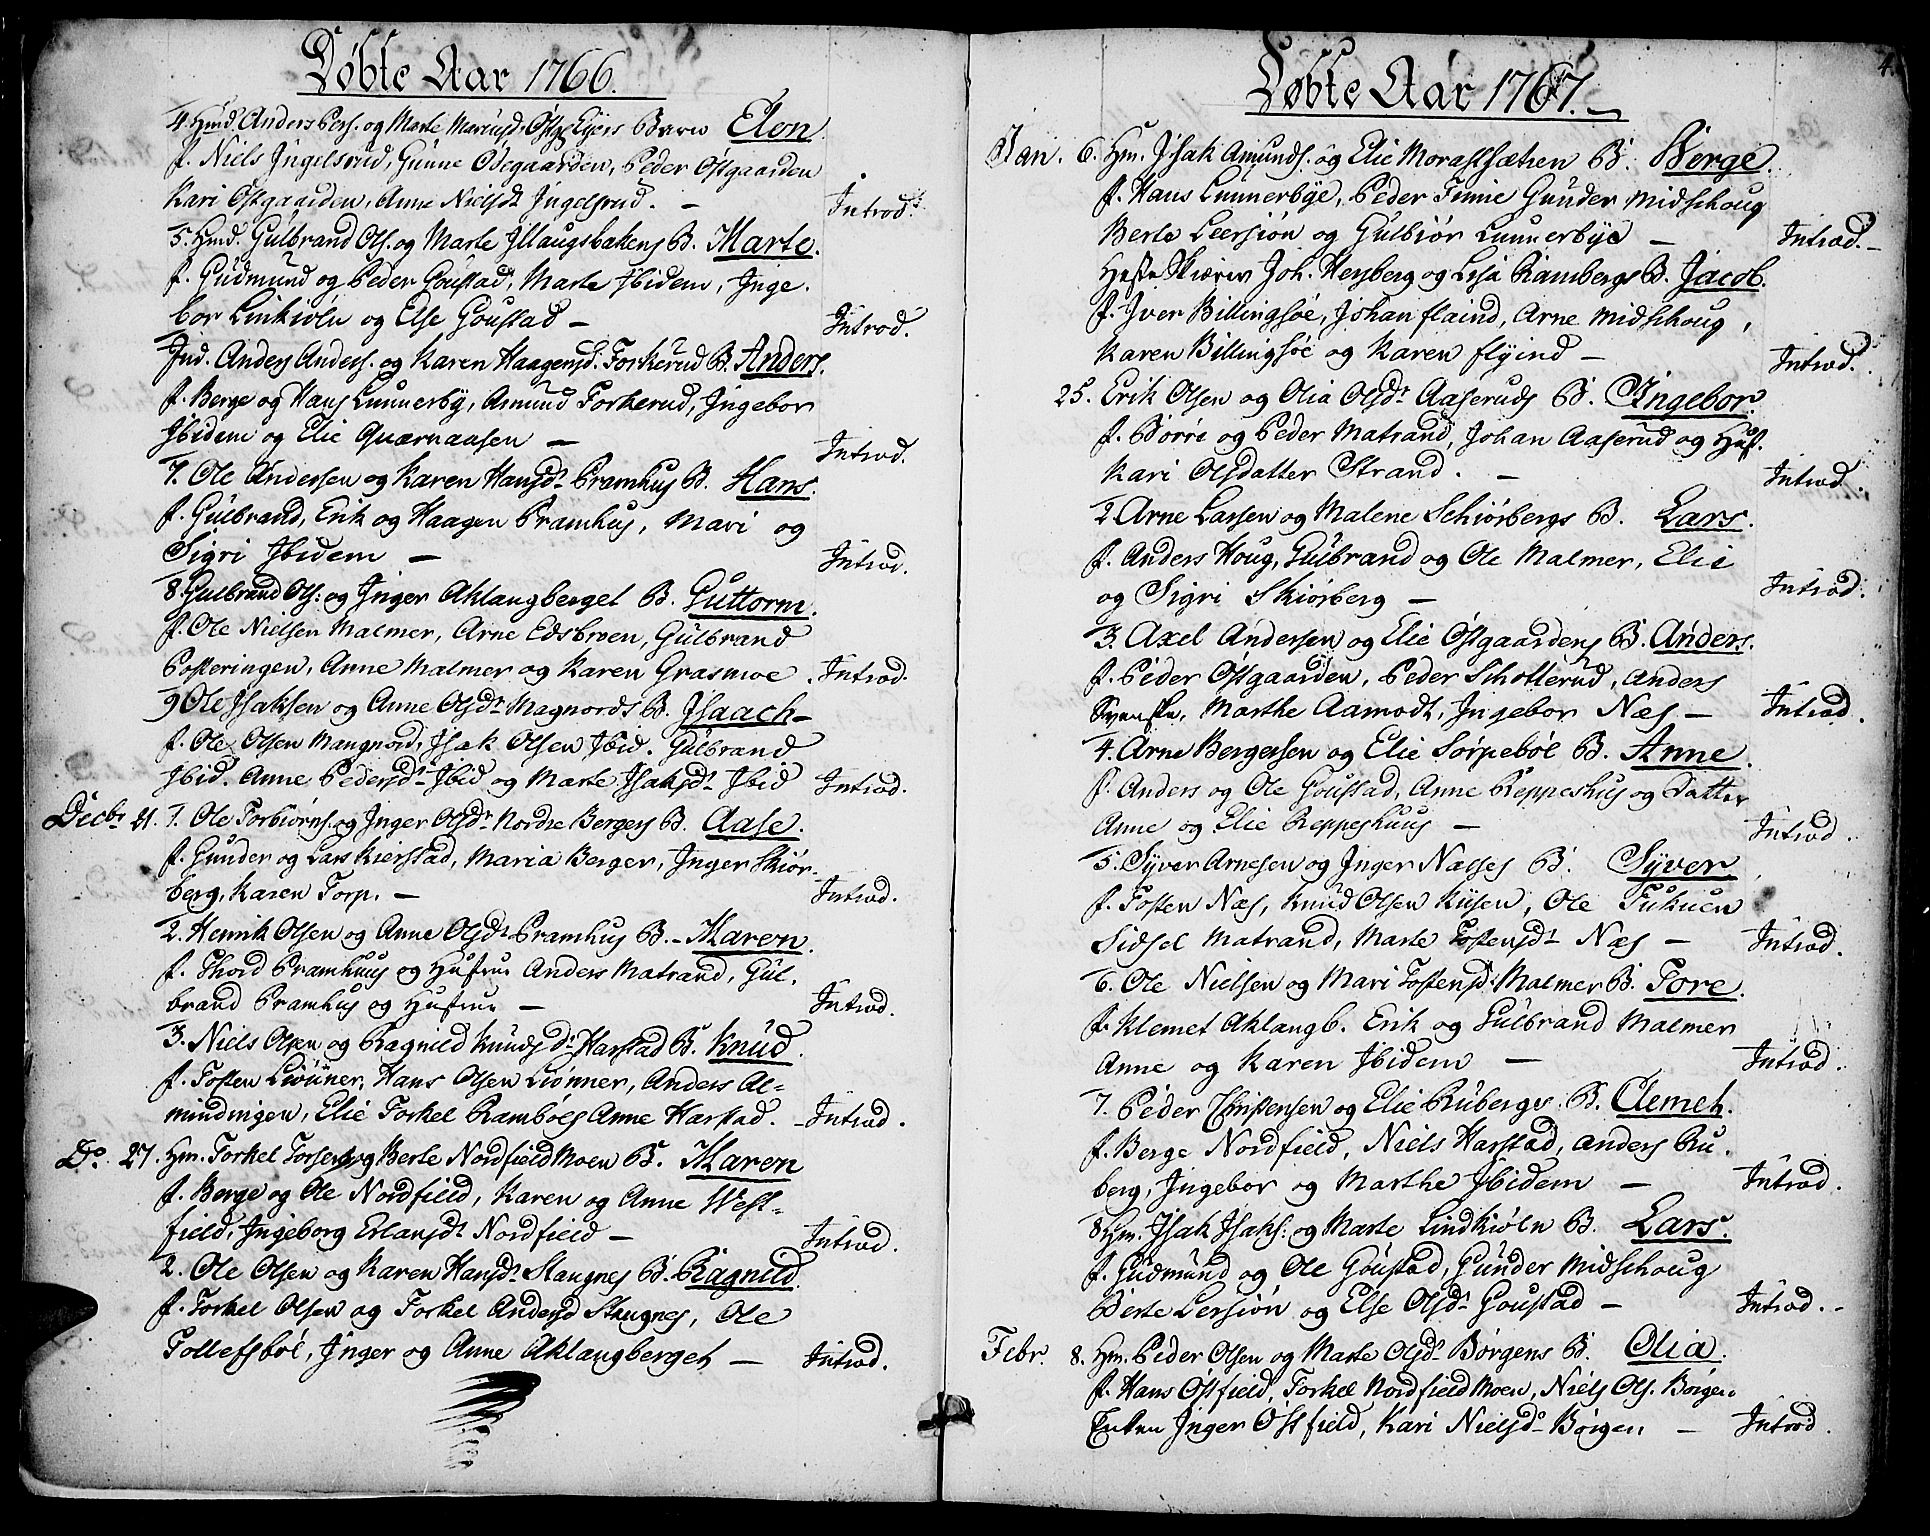 Døbte Aar 1766.
4. Hmd. Anders Pers. og Marte Østgs Eyers Barn Elen.
f. Niels Ingelsrud, Gunne Ødegaarden, Peder Østgaarden
Kari Østgaarden, Anne Nielsdr Ingelsrud. – Introd.
5. Hmd. Gulbrand Ols. og Marte Illaugsbakens B. Marte.
f. Gudmund og Peder Goustad, Marte Ibidem, Inge-
bor Linkiøln og Else Goustad – Introd.
Ind. Anders Anders. og Karen Haagensd. Torkerud B. Anders.
f. Berge og Hans Lunnerby, Amund Torkerud, Ingebor
Ibidem og Elie Quærnaasen – Introd.
7. Ole Andersen og Karen Hansdr Pramhus B. Hans.
f. Gulbrand, Erik og Haagen Pramhus, Mari og
Sigri Ibidem – Introd.
8. Gulbrand Ols: og Inger Aklangberget B. Guttorm.
f. Ole Nielsen Malmer, Arne Edsbroen, Gulbrand
Posteringen, Anne Malmer og Karen Grasmoe. Introd.
9. Ole Isaksen og Anne Olsdr Magnords B. Isaach –
f. Ole Olsen Mangnord, Isak Olsen Ibid. Gulbrand
Ibid. Anne Pedersdr Ibid og Marte Isaksdr Ibid Introd.
Decbr 21. 1. Ole Torbiørns. og Inger Olsdr Nordre Bergers B. Aase.
f. Gunder og Lars Kierstad, Maria Berger, Inger Skiør-
berg, Karen Torp. – Introd.
2. Henrik Olsen og Anne Olsdr Pramhus B. – Maren.
f. Thord Pramhuus og Hustrue Anders Matrand, Gul-
brand Pramhus og Hustrue – Introd.
3. Niels Olsen og Ragnild Knudsdr Harstad B. Knud.
f. Tosten Liønner, Hans Olsen Liønner, Anders Al-
mindingen, Elie Torkel Rambøls Anne Harstad. – Introd.
Do. 27. Hm. Torkel og Berte Nordfield Moen B. Maren
f. Berge og Ole Nordfield, Karen og Anne West-
field, Ingeborg Erlansdr Nordfield – Introd.
2. Ole Olsen og Karen Hansdr Stangnes B. Ragnild.
f. Torkel Olsen og Torkel Andersd Stangnes, Ole
Tollefsbøl, Inger og Anne Aklangberget – Introd.
4.
Døbte Aar 1767. –
Jan. 6. Hm. Isak Amunds. og Elie Morastsætren B. Berge.
f. Hans Lunnerbye, Peder Gunder Midschoug
Berte Leersiøn og Gulbiør Lunnerbye – Introd. –
Joh. Hesberg og Lisa Rambergs B. Jacob.
f. Iver Billingsøe, Johan flaind, Arne Midschoug,
Karen Billingsøe og Karen flyind – Introd.
25. Erik Olsen og Olia Olsdr Aaseruds B. Ingebor.
f. Børre og Peder Matrand, Johan Aaserud og Hust.
Kari Olsdatter Strand. – Introd.
2. Arne Larsen og Malene Schiørbergs B. Lars.
f. Anders Houg, Gulbrand og Ole Malmer, Elie
og Sigri Skiørberg – Introd.
3. Axel Andersen og Elie Østgaardens B. Anders.
f. Peder Østgaarden, Peder Schotterud, Anders
Svenske, Marthe Aamodt, Ingebor Næs – Introd.
4. Arne Bergersen og Elie Sørpebøl B. Anne.
f. Anders og Ole Goustad, Anne Reppeshus og Datter
Anne og Elie Reppeshuus – Introd.
5. Syver Arnesen og Inger Næses B. Syver.
f. Tosten Næs, Knud Olsen Kysen, Ole
Sidsel Matrand, Marte Tostensdr Næs – Introd.
6. Ole Nielsen og Mari Tostensd. Malmer B. Tore.
f. Klemet Aklangb. Erik og Gulbrand Malmer
Anne og Karen Ibidem – Introd.
7. Peder Christensen og Elie Rubergs B. Clemet.
f. Berge Nordfield, Niels Harstad, Anders Ru-
berg, Ingebor og Marthe Ibidem – Introd.
8. Hm. Isak Isaks: og Marte Lindkiøln B. Lars.
f. Gudmund og Ole Goustad, Gunder Midschoug
Berte Lersiøn og Else Olsdr Goustad – Introd. –
Febr. 8. Hm. Peder Olsen og Marte Olsdr Børgens B. Olia.
f. Hans Østfield, Torkel Nordfield Moen, Niels Ols. Børgen
Enken Inger Østfield, Kari Nielsdr Børgen – Introd.